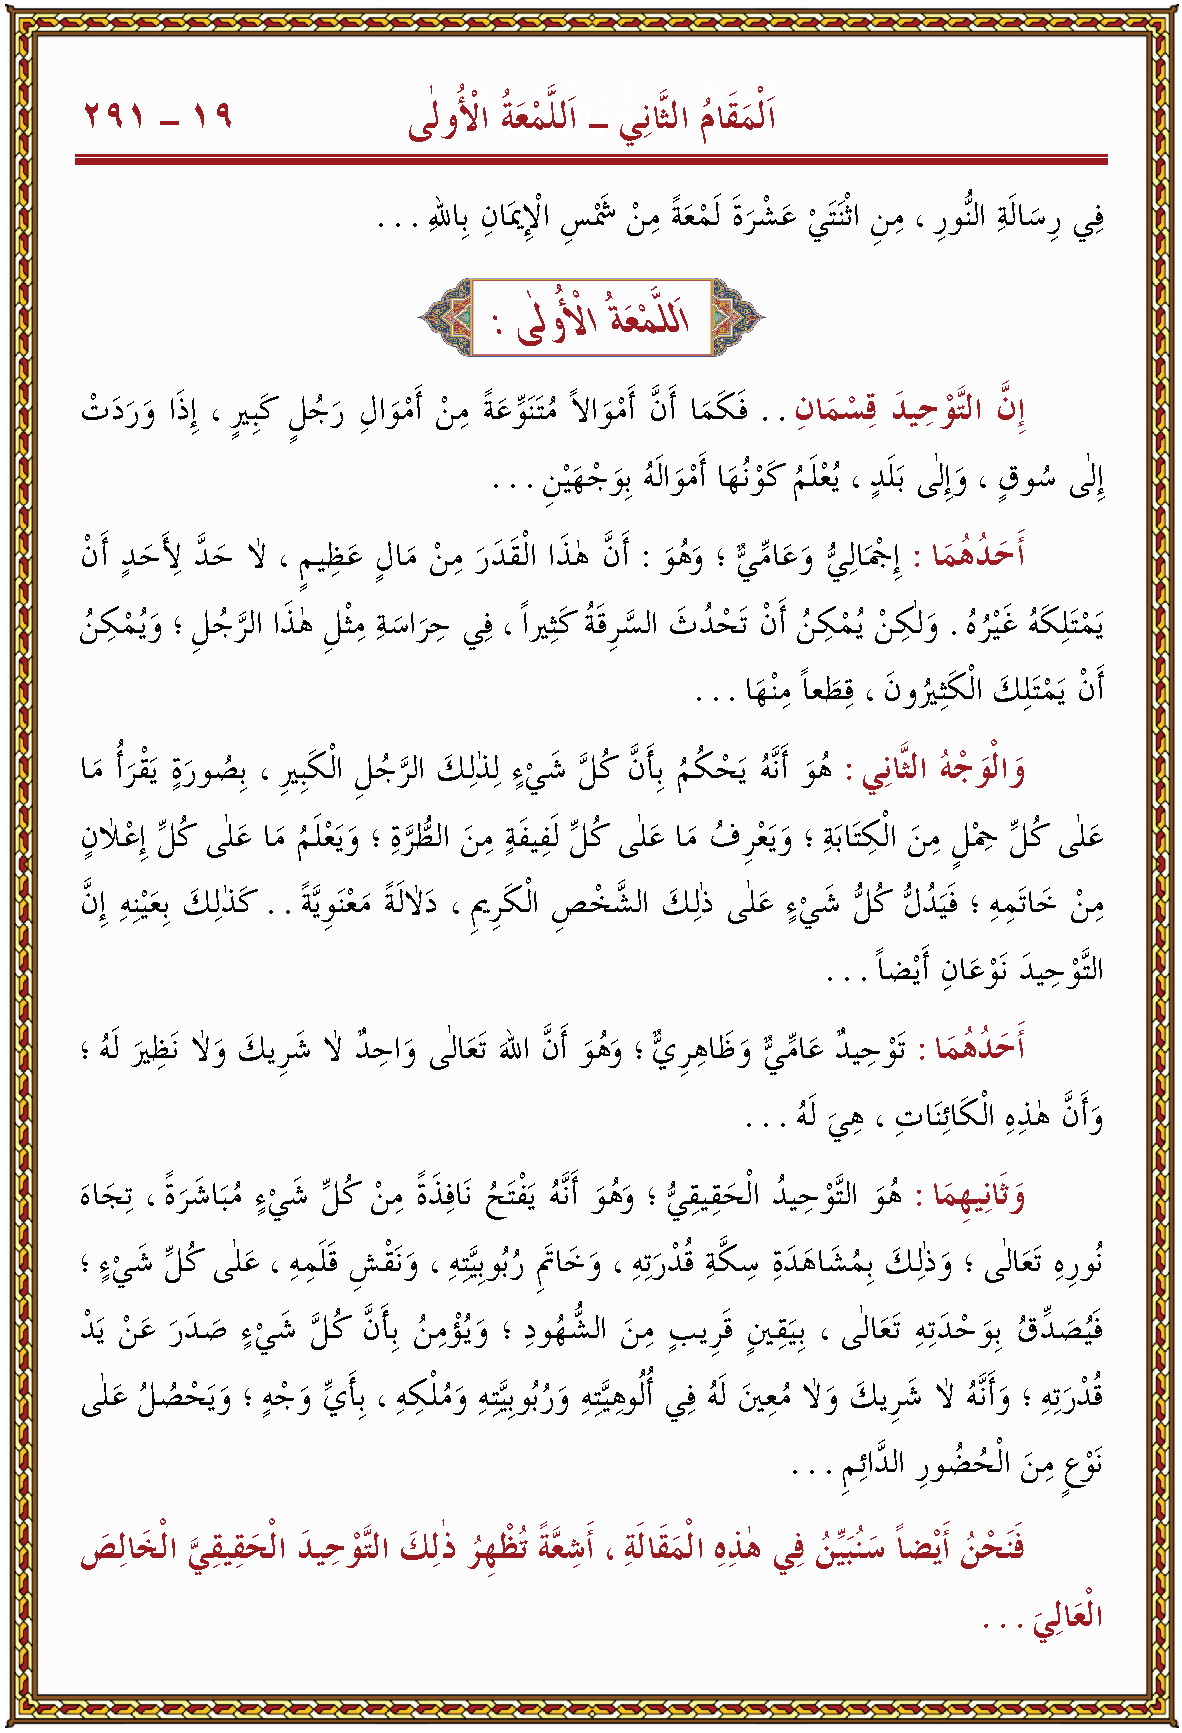 اَلْمَقَامُ الثَّانِي ـ اَللَّمْعَةُ الْأُولٰى ١٩ ـ ٢٩١
فِي رِسَالَةِ النُّورِ ، مِنِ اثْنَتَيْ عَشْرَةَ لَمْعَةً مِنْ شَمْسِ الْإِيمَانِ بِاللهِ . . .
اَللَّمْعَةُ الْأُولٰى :
إِنَّ التَّوْحِيدَ قِسْمَانِ . . فَكَمَا أَنَّ أَمْوَالاً مُتَنَوِّعَةً مِنْ أَمْوَالِ رَجُلٍ كَبِيرٍ ، إِذَا وَرَدَتْ
إِلٰى سُوقٍ ، وَإِلٰى بَلَدٍ ، يُعْلَمُ كَوْنُهَا أَمْوَالَهُ بِوَجْهَيْنِ . . .
أَحَدُهُمَا : إِجْمَالِيٌّ وَعَامِّيٌّ ؛ وَهُوَ : أَنَّ هٰذَا الْقَدَرَ مِنْ مَالٍ عَظِيمٍ ، لَا حَدَّ لِأَحَدٍ أَنْ
يَمْتَلِكَهُ غَيْرُهُ . وَلٰكِنْ يُمْكِنُ أَنْ تَحْدُثَ السَّرِقَةُ كَثِيراً ، فِي حِرَاسَةِ مِثْلِ هٰذَا الرَّجُلِ ؛ وَيُمْكِنُ
أَنْ يَمْتَلِكَ الْكَثِيرُونَ ، قِطَعاً مِنْهَا . . .
وَالْوَجْهُ الثَّانِي : هُوَ أَنَّهُ يَحْكُمُ بِأَنَّ كُلَّ شَيْءٍ لِذٰلِكَ الرَّجُلِ الْكَبِيرِ ، بِصُورَةٍ يَقْرَأُ مَا
عَلٰى كُلِّ حِمْلٍ مِنَ الْكِتَابَةِ ؛ وَيَعْرِفُ مَا عَلٰى كُلِّ لَفِيفَةٍ مِنَ الطُّرَّةِ ؛ وَيَعْلَمُ مَا عَلٰى كُلِّ إِعْلَانٍ
مِنْ خَاتَمِهِ ؛ فَيَدُلُّ كُلُّ شَيْءٍ عَلٰى ذٰلِكَ الشَّخْصِ الْكَرِيمِ ، دَلَالَةً مَعْنَوِيَّةً . . كَذٰلِكَ بِعَيْنِهِ إِنَّ
التَّوْحِيدَ نَوْعَانِ أَيْضاً . . .
أَحَدُهُمَا : تَوْحِيدٌ عَامِّيٌّ وَظَاهِرِيٌّ ؛ وَهُوَ أَنَّ اللهَ تَعَالٰى وَاحِدٌ لَا شَرِيكَ وَلَا نَظِيرَ لَهُ ؛
وَأَنَّ هٰذِهِ الْكَائِنَاتِ ، هِيَ لَهُ . . .
وَثَانِيهِمَا : هُوَ التَّوْحِيدُ الْحَقِيقِيُّ ؛ وَهُوَ أَنَّهُ يَفْتَحُ نَافِذَةً مِنْ كُلِّ شَيْءٍ مُبَاشَرَةً ، تِجَاهَ
نُورِهِ تَعَالٰى ؛ وَذٰلِكَ بِمُشَاهَدَةِ سِكَّةِ قُدْرَتِهِ ، وَخَاتَمِ رُبُوبِيَّتِهِ ، وَنَقْشِ قَلَمِهِ ، عَلٰى كُلِّ شَيْءٍ ؛
فَيُصَدِّقُ بِوَحْدَتِهِ تَعَالٰى ، بِيَقِينٍ قَرِيبٍ مِنَ الشُّهُودِ ؛ وَيُؤْمِنُ بِأَنَّ كُلَّ شَيْءٍ صَدَرَ عَنْ يَدْ
قُدْرَتِهِ ؛ وَأَنَّهُ لَا شَرِيكَ وَلَا مُعِينَ لَهُ فِي أُلُوهِيَّتِهِ وَرُبُوبِيَّتِهِ وَمُلْكِهِ ، بِأَيِّ وَجْهٍ ؛ وَيَحْصُلُ عَلٰى
نَوْعٍ مِنَ الْحُضُورِ الدَّائِمِ . . .
فَنَحْنُ أَيْضاً سَنُبَيِّنُ فِي هٰذِهِ الْمَقَالَةِ ، أَشِعَّةً تُظْهِرُ ذٰلِكَ التَّوْحِيدَ الْحَقِيقِيَّ الْخَالِصَ
الْعَالِيَ . . .